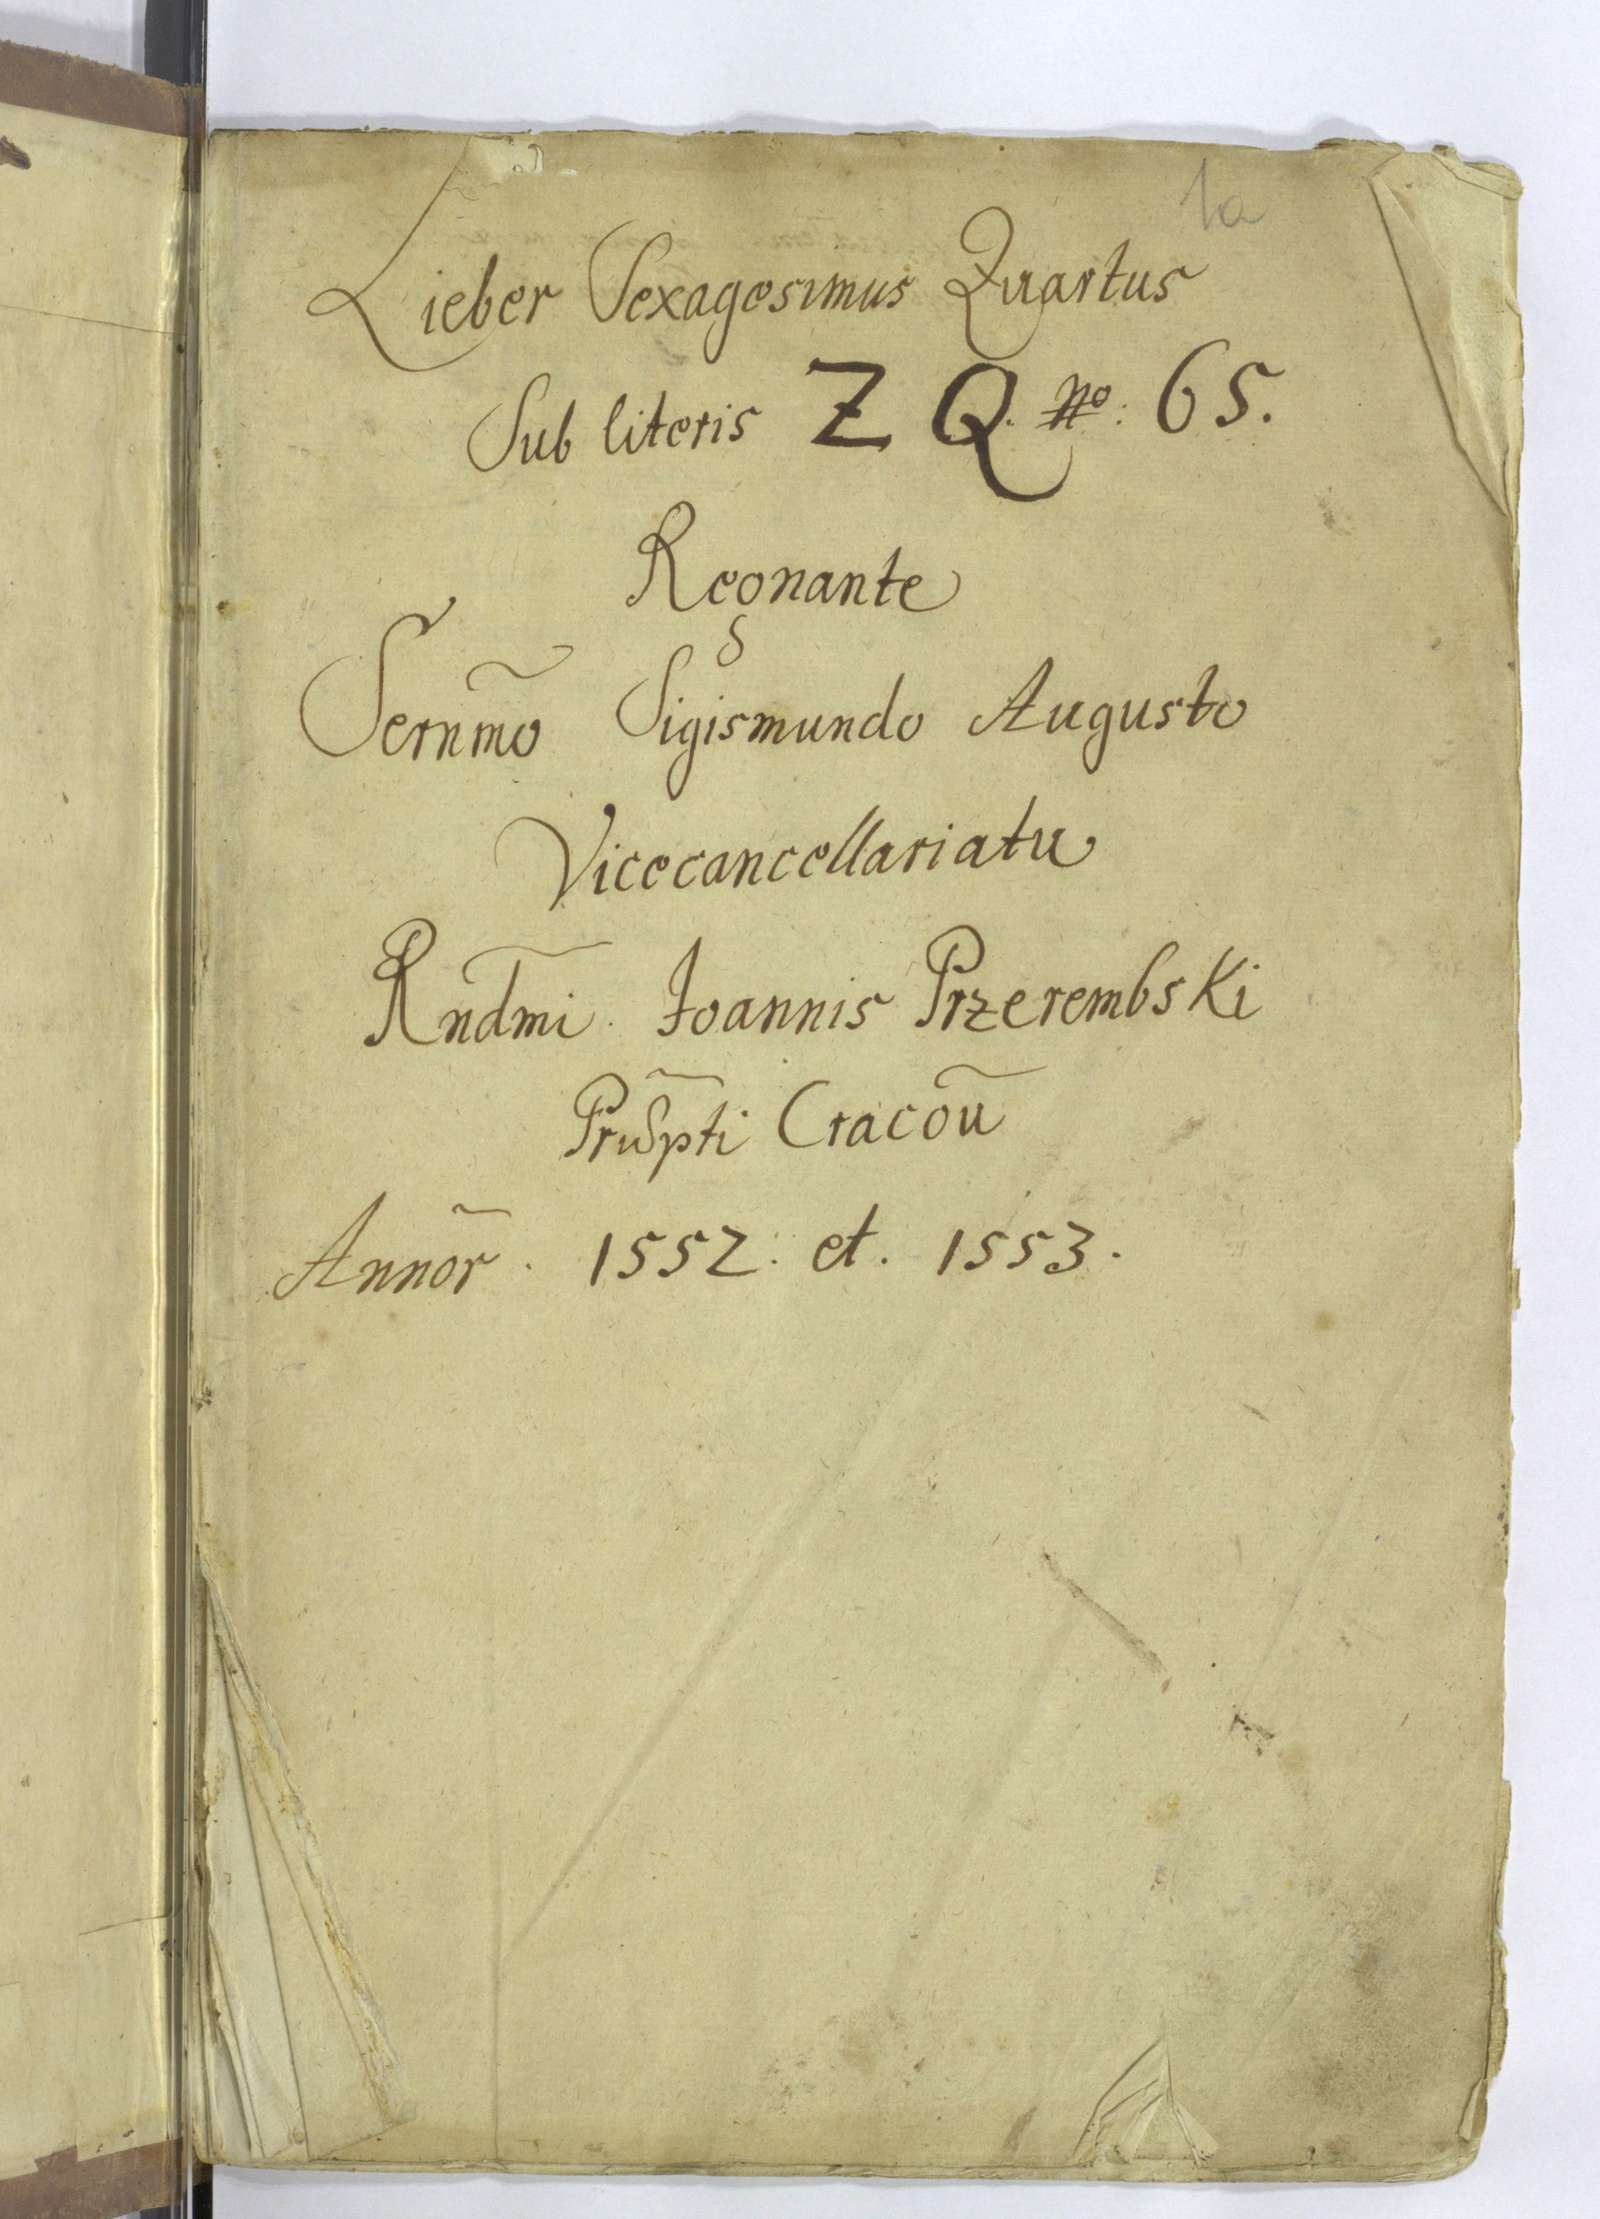 1a
Lieber Sexagesimus Quartus
Sub literis Z Q. No: 65.
Regnante
Sernmõ Sigismundo Augusto
Vicecancellariatu
Rndm̃i. Joannis Przerembski
Cracoũ
Annor̃. 1552. et. 1553.